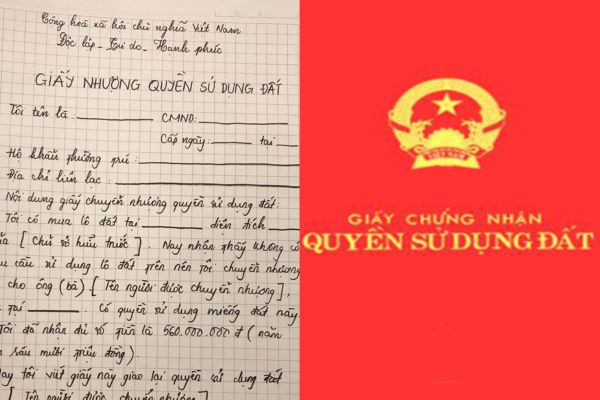 Cộng hoà xã hội chủ nghĩa Việt Nam
Độc lập - Tự do - Hạnh phúc
GIẤY NHƯỢNG QUYỀN SỬ DỤNG ĐẤT
Tôi tên là : CMND:
Cấp ngày: tại
Hộ khẩu thường trú :
Địa chỉ liên lạc :
Nội dung giấy chuyển nhượng quyền sử dụng đất:
Tôi có mua lô đất tại diện tích
[ Chủ sở hữu trước ]. Nay nhận thấy không có
cầu sử dụng lô đất trên nên tôi chuyển nhượng
cho ông (bà). [ Tên người được chuyển nhượng ],
tại . Có quyền sử dụng miếng đất này
Tôi đã nhận đủ số tiền là 560.000.000 đ ( năm
sáu mươi triệu đồng ).
tôi viết giấy này giao lại quyền sử dụng đất
[ Tên người được chuyển nhượng ]
VIỆT NAM
GIẤY CHỨNG NHẬN
QUYỀN SỬ DỤNG ĐẤT